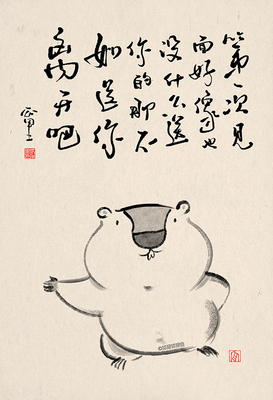 第一次见
面好像也
没什么送
你的那不
如送你
离开吧